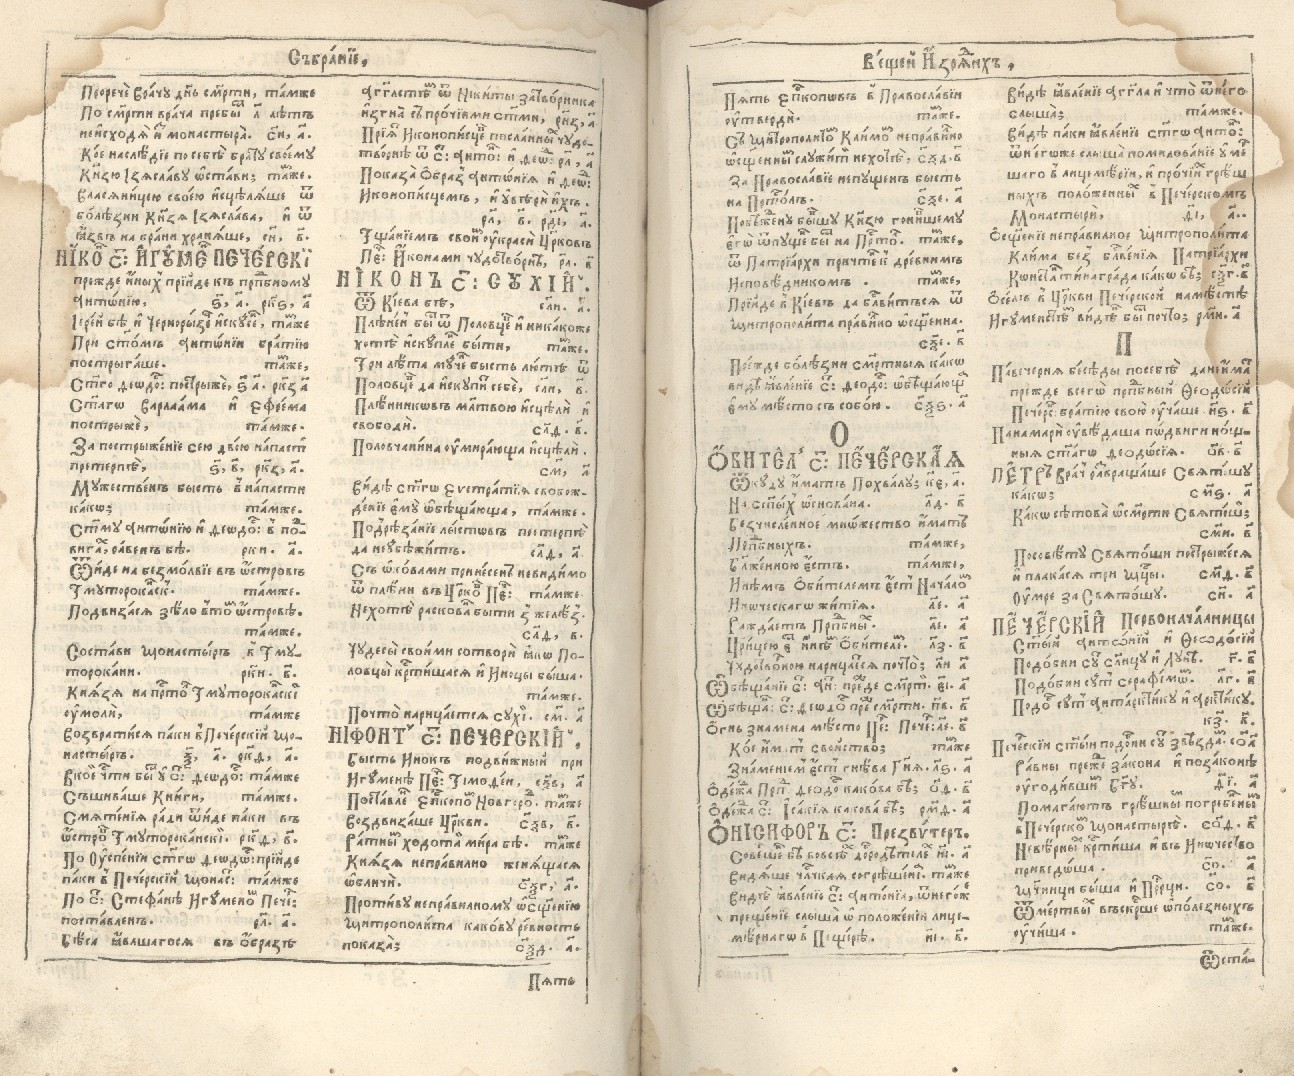 Събра́нїе,
Проречѐ врачу̀ дн҃ь см҃рти, та́мже
По см҃рти врача̀ пребы́ л҃ лѣтъ
неисходѧ̀ и҆з̾ монастырѧ̀. сн҃и, а҃.
Кое наслѣдїе по себѣ̀ брату своему
Кн҃зю Ізѧславу ѡ҆ста́ви; та́же.
власѧни́цею своею и҆сцѣлѧше ѿ
болѣзни Кн҃зѧ Ізѧслава, и҆ ѿ
ꙗ҆звъ на бра́ни хранѧше, сн҃и, в҃.
НИКО̀ С: ИГУМЀ ПЕЧЕРСКЇ
прежде и҆ны́хъ прїиде къ прп҃бному
Антѡ́нїю, ѕ҃, а҃. рк҃ѕ, а҃
Іерей бѣ̀ и҆ Чернори́зе и҆скусе, та́же
При ст҃омъ Антѡнїи братїю
постригаше. та́же,
Ст҃го Ѳеѡдо: пострыже, ѕ҃ а҃. рк҃з а҃
Ст҃агѡ Варлаама и҆ Ефрема
постриже, та́мже.
За постриже́нїе сею двою напасть
претерпѣ, ѕ҃, в҃, рк҃з, а҃.
Мужественъ бысть в̾ напасти
какѡ; та́мже.
Ст҃му Антѡнїю и҆ Ѳеѡдо: в̾ по-
вига, равенъ бѣ. рк҃и. а҃.
Ѿиде на безмо́лвїе въ ѡ҆стровъ
Тмуторока́ск. та́мже.
Подвиза́сѧ зѣло в̾то ѡ҆стровѣ.
та́мже.
Состави Монастырь в̾ Тму-
торокани. рк҃и. в҃.
Княза на прто̀ Тмуторока́скі
оумоли, та́мже
возврати́сѧ паки в̾ Пече́рскїй Мо-
настырь. ѯ҃, а҃. рк҃д, а҃.
Вкоѐ чти бы у с: Ѳеѡдо: та́мже
Съшиваше Книги, та́мже.
Смѧтенїѧ ради ѿиде паки въ
ѡ҆стро Тмуторокански. рк҃д, в҃.
По Успенїи ст҃гѡ Ѳеѡдо: прїиде
паки в̾ Печерскїй Монас: та́мже
По с: Стефа́нѣ Игумено Пече:
поставленъ. рл҃. а҃.
Бѣса ꙗ҆влшагосѧ въ Образѣ
Аггелстѣ ѿ Ники́ты Затворника
и҆згна̀ съ про́чїими ст҃ми, рн҃з, а҃
Прїѧ̀ Иконописце посла́нны чудо-
творнѣ ѿ с: Анто: и҆ Ѳеѡ: рл҃, а҃
Показа̀ Образ Антѡнїѧ и҆ Ѳеѡ:
Иконописцемъ, и҆ увѣри и҆хъ.
рл҃, в҃. рд҃і, а҃.
Тщанїемъ свои́ оу҆красѝ Цр҃ковь
Пе: Иконами чудотво́рны, рл҃. в҃
НИКОНЪ С: СУХІЙ.
Ѿ Кїева бѣ, сл҃и. а҃.
Плѣнен бы̀ ѿ Половце и никакоже
хотѣ̀ искупле бы́ти, та́же.
Три лѣта мучѐ бысть лютѣ ѿ
Половце да искупи себе, сл҃и, в҃.
Плѣнникѡвъ мл҃твою и҆сцѣли и҆
свободи. сл҃д. в҃.
Половчанина оу҆мирающа и҆сцѣли.
см҃, а҃
видѣ̀ ст҃гѡ Еустратїѧ свобож-
де́нїе ему̀ ѡ҆бѣщающа, та́мже.
Подрѣза́нїе лы́стѡвъ претерпѣ
да неубѣжитъ. сл҃д, а҃.
Съ ѡ҆ковами принесенъ невидимо
ѿ плѣни въ Црко Пе: та́мже
Нехотѣ̀ раскова̀ быти ѿ желѣз.
сл҃д, в҃.
Чудесы своими сотворѝ ꙗ҆кѡ По-
ловцы кр҃ти́шасѧ и҆ Иноцы быша.
та́мже.
Почто̀ нарицаетсѧ сухі. см҃. а҃
НІФОНТ С: ПЕЧЕРСКІЙ,
Бысть Инокъ подви́жный при
Игуменѣ Пе: Тімоѳеи, сѯ҃в, а҃
Поставлѐ Еп҃копо Новгоро̀. та́же
воздвиза́ше Цр҃кви. сѯ҃в, в҃.
Ратны ходота̀ мира бѣ. та́же
Князѧ неправилно женѧ́щасѧ
ѡ҆бличѝ. сѯ҃г, а҃.
Противу неправилному ѡ҆сщ҃енїю
Митрополита какову ревность
показа̀; сѯ҃д. а҃.
Пѧть
Ве́щей Изрѧ́дныхъ,
Пѧть Еп҃копѡвъ в̾ Православїи
оу҆тверди. та́же.
Съ Митрополито̀ Климо̀ неправилно
ѡ҆сщ҃енны служит̀ нехотѣ̀, сѯ҃д. в҃
За Православїе непущенъ бысть
на Прт҃олъ. сѯ҃е. а҃
Побѣждену бы́шу Кн҃зю гони́вшему
его̀ ѿпущѐ бы̀ на Прто̀. та́же,
ѿ Патрїархи причтѐ к̾ древнимъ
Исповѣдникомъ. та́же,
Прїиде в̾ Кїевъ да бл҃ви́тьсѧ ѿ
Митрополита правилно ѡ҆сщ҃енна.
сѯ҃е. в҃
Прежде болѣзни см҃ртныѧ какѡ
видѣ̀ ꙗ҆вленїе с: Ѳеодо: ѡ҆бѣщающ̀
ему мѣсто съ собо́ю. сѯ҃ѕ. а҃
О
ОБИТЕЛ С: ПЕЧЕРСКАЯ
Ѿкуду и҆матъ Похвалу; к҃е, а҃.
На ст҃ы́х ѡ҆снована. л҃д. в҃
Безчисленное мно́жество и҆матъ
Прп҃бныхъ. та́мже,
Бл҃женною е҆стъ. та́мже,
Инѣмъ Обителемъ е҆ст̾ Начало
Иноческагѡ житїѧ. л҃е. а҃
Раждаетъ Прп҃бны. л҃е. а҃
Царицею е҆ и҆нѣ̀ Обители. л҃з. в҃
Чудотво́рною нарицаесѧ почто; л҃и а҃
Ѡ҆бѣща́нїе с: Ан: пре́де смрт. е҃і. а҃
Ѡ҆бѣща: с: Ѳеодо: пре см҃рти. п҃в. в҃
Огнь зна́мена мѣсто Пе: Пече: л҃е. в҃
Кое им.т свойство; та́же
Знаменїем̀ е҆ст̾ гнѣва Гн҃ѧ. л҃ѕ. а҃
Оде́жа Прп: Ѳеодо какова бѣ; о҃д. в҃
Оде́жа с: Ісаакїѧ какова бѣ; рм҃д. а҃
ОНИСИФОРЪ С: Презвутеръ.
Совершѐ бѣ̀ во всѣ̀ доброде́теле н҃і. а҃
видѧше чл҃чкаѧ согрѣшенї: та́же
видѣ̀ ꙗ҆вленїѧ с: Антонїѧ, ѿнегож
прещенїе слыша̀ ѡ҆ положенїи лице-
мѣрнагѡ в̾ Пещерѣ. н҃і. в҃.
видѣ̀ ꙗ҆вленїе Агг҃ла и҆ что̀ ѿнего
слыша; та́мже.
видѣ̀ паки ꙗ҆вленїе ст҃гѡ Анто:
ѿнегѡже слыша̀ помиловaнїе уме́-
шаго в̾ лицемѣрїи, и҆ прочїи грѣш
ныхъ положенны̀ в̾ Печерскомъ
Монастыри, д҃і, а҃.
Ѡ҆сщ҃енїе неправилное Митрополита
Клима без бл҃венїѧ Патрїархи
Константинаграда како бѣ; сѯ҃г. в҃
Осе́лъ в̾ Цр҃кви Печерской на мѣстѣ
Игуменстѣ̀ видѣ̀ бы̀ почто; рм҃и. а҃
П
Павечернїѧ бесѣды по себѣ данейма́
прежде всего̀ прп҃бный Ѳеодосїй
Печерс: братїю свою̀ оу҆чаше. н҃ѕ. в҃
Панамари оу҆вѣдаша под́виги нощ-
ныѧ ст҃агѡ Ѳеодосїѧ. о҃в. в҃
ПЕТРЪ врач̀ разбраща́ше Свѧтошу
какѡ; см҃ѕ. а҃
Какѡ сѣтова̀ ѡ҆ смрти Свѧтоши;
см҃и. в҃
По совѣту Свѧтоши пострижесѧ
и҆ плакасѧ три Мцы. см҃д. в҃
Оу҆мре за Свѧтошу. сн҃. а҃
ПЕЧЕРСКІЙ Первонача́лницы
Ст҃ы́й Антѡнїй и҆ Ѳеодосїй
Подобни су слнцу и҆ Лунѣ. г҃. в҃
Подобни сут Серафимо. л҃г. в҃
Подо сут Антаркти́ку и҆ Арктику.
к҃з. в҃.
Печерскїи ст҃ы́и подобни су̀ Звѣзда. со҃а а҃
Равны прежѐ закона и҆ по законѣ
оу҆годивши Бг҃у. д҃і. а҃
Помагаютъ грѣшны̀ погребенны
в̾ Печерско Монастырѣ. со҃д. в҃
Невѣрны̀ кр҃тиша и҆ въ Иночество
приведоша. со҃. а҃
Мч҃ници быша и҆ Прр҃ци. со҃. в҃
Ѿ мертвы̀ въскрше ѡ҆ полезныхъ
оу҆чиша. та́же.
Ѿста-